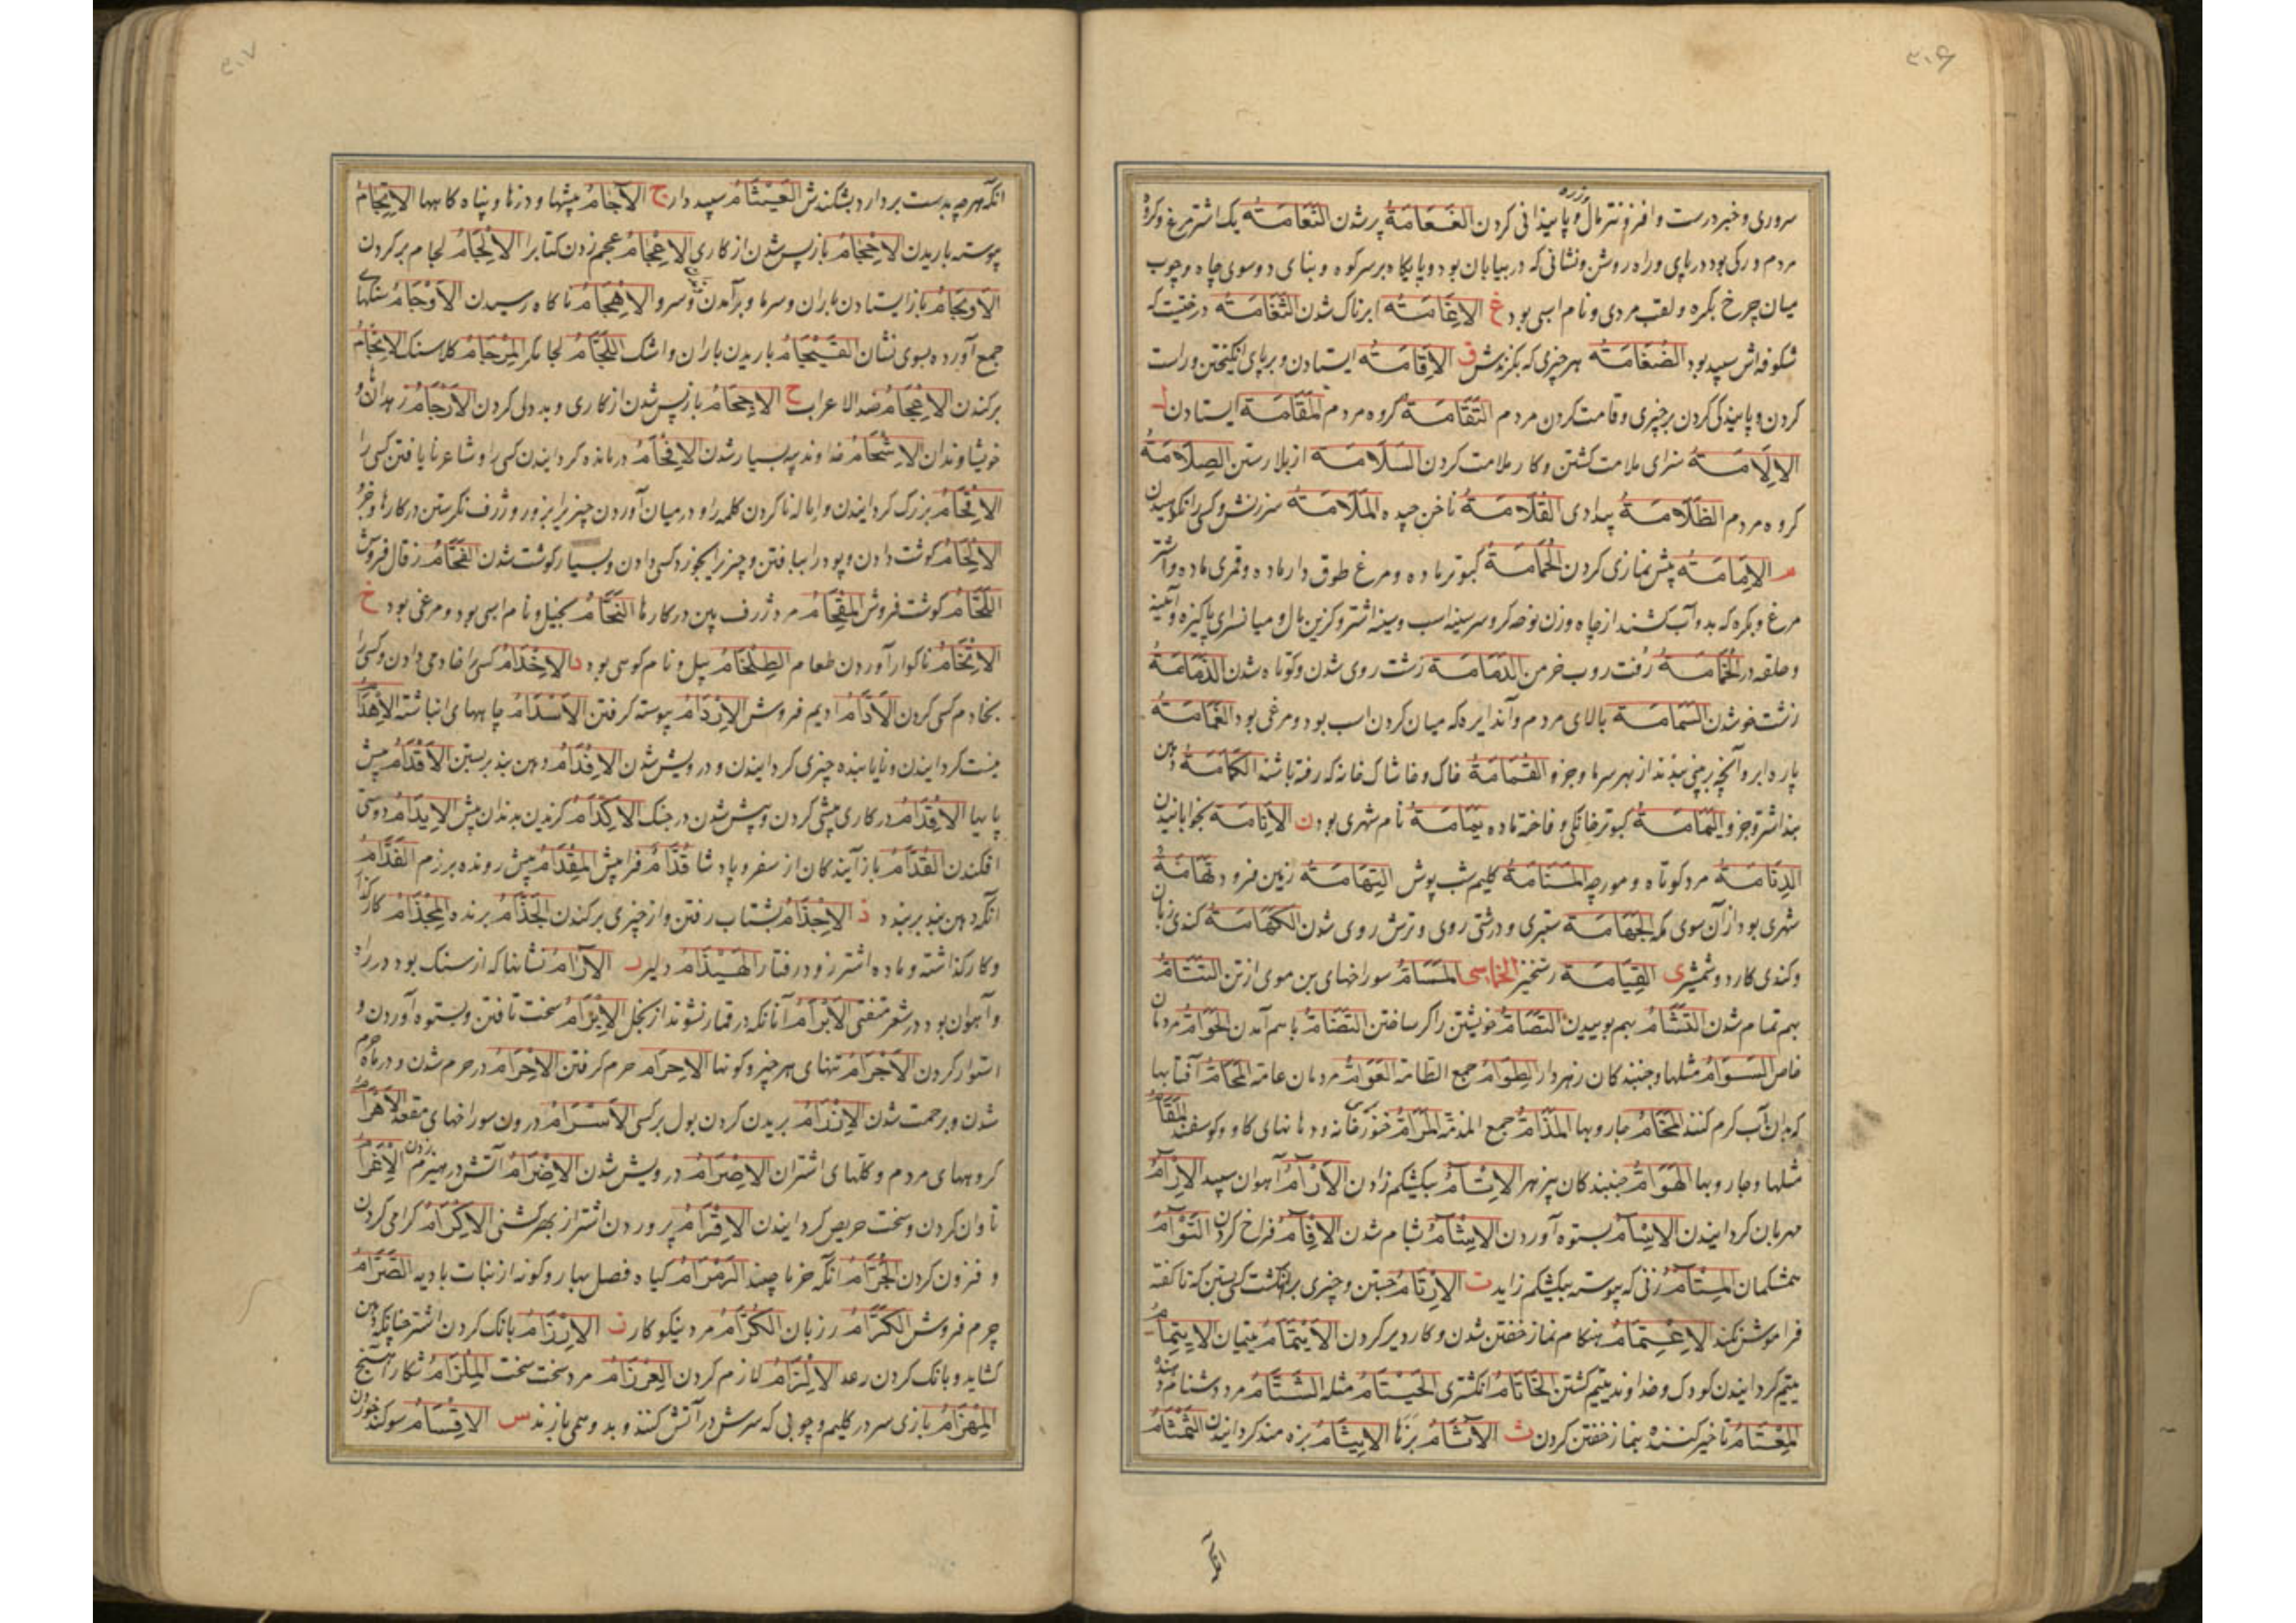 ۳۰۶
سروری و خبر درست و افزونتر مال و پایندانی کردن الغَعَامَةُ پر شدن النَّعَامَةُ یک اشترمرغ و کره
مردم و رکی بود در پای و راه روشن و نشانی که در بیابان بود و پایکاه بر سر کوه و بنای دو سوی چاه و چوب
میان چرخ بکره و لقب مردی و نام اسبی بود غ الاِغَامَةُ ابرناک شدن الثَّغَامَةُ درختیست که
شکوفه اش سپید بود الضُّغَامَةُ هر چیزی که بکزندش ق الاِقَامَةُ ایستادن و بر پای انکیختن و راست
کردن و پایندکی کردن بر چیزی و قامت کردن مردم گروه مردم المَقَامَةُ ایستادن
الاِلَامَةُ سزای ملامت کشتن و کار ملامت کردن السَّلَامَةُ از بلا رستن الصِّلَامَةُ
کروه مردم الظُّلَامَةُ بیدادی القُلَامَةُ ناخن چیده المَلَامَةُ سرزنش و کسی را نکوهیدن
م الاِمَامَةُ پیش نمازی کردن الحَمَامَةُ کبوتر ماده و مرغ طوق دار ماده و قمری ماده و اشتر
مرغ و بکره که بدو آب کشند از چاه و زن نوحه کر و سر سینه اسب و سینه اشتر و کزین مال و میان سرای پاکیزه و آیینه
و حلقه در الخُمَامَةُ رُفت روب خرمن الدَّمَامَةُ زشت روی شدن و کوتاه شدن الذَّمَامَةُ
زشت خو شدن السَّمَامَةُ بالای مردم و آن دایره که میان کردن اسب بود و مرغی بود الغَمَامَةُ
پاره ابر و آنچه بر بینی بندند از بهر سرما و جز و القُمَامَةُ خاک و خاشاک خانه که رفته باشند الکِمَامَةُ دهن
بند اشتر و جز و الیَمَامَةُ کبوتر خانکی و فاخته ماده یَمَامَةُ نام شهری بود ن الاِنَامَةُ بخوابانیدن
الدِنَّامَةُ مرد کوتاه و مورچه المَنَامَةُ کلیم شب پوش التِهَامَةُ زمین فرود تِهَامَةُ
شهری بود از آن سوی مکه الجَهَامَةُ ستبری و درشتی روی و ترش روی شدن الکَهَامَةُ کندی زبان
و کندی کارد و شمشیر ی القِیَامَةُ رستخیز الخماسی المَسَامُّ سوراخهای بن موی از تن التَتَامُّ
بهم تمام شدن التَشَامُّ بهم بوییدن التَصَامُّ خویشتن را کر ساختن التَضَامُّ باهم آمدن الحَوَامُّ مردمان
خاص السَوَامُّ مثلها و جنبندکان زهردار الطَوَامُّ جمع الطامه العَوَامُّ مردمان عامه المَحَامُّ آفتابها
که بدان آب کرم کنند المَخَامُّ جاروبها المَذَامُّ جمع المذمة المَرَامُّ و دهانهای کاو و کوسفند المَقَامُّ
مثلها و جاروبها الهَوَامُّ جنبندکان بی زهر الاِتْآمُ بیکشکم زادن الاَرْآمُ آهوان سپید الاِرْآمُ
مهربان کردانیدن الاِسْآمُ بستوه آوردن الاِشْآمُ بشام شدن الاِفْآمُ فراخ کردن التَوْآمُ
همشکمان المِتْآمُ زنی که پیوسته بیکشکم زاید ت الاِرْتَامُ جستن و چیزی بر انکشت کسی بستن که تا کفته
فراموش نکند الاِعْتَامُ هنکام نماز خفتن شدن و کار دیر کردن الاَیْتَامُ یتیمان الاِیتَامُ
یتیم کردانیدن کودک و خداوند یتیم کشتن الخَاتَامُ انکشتری الخَیْتَامُ مثله الشَتَّامُ مرد دشنام دهنده
المِعْتَامُ تاخیر کننده نماز خفتن کردن ث الاٰثَامُ بزها الاِیثَامُ بزه مند کردانیدن القَثَّامُ
انکه
۳۰۷
انکه هرچه بدست بردارد بشکندش العَیْثَامُ سپیددار ج الاٰجَامُ بیشها و دزها و پناه کاهها الاِثْجَامُ
پیوسته باریدن الاِحْجَامُ باز پس شدن از کاری الاِعْجَامُ عجم زدن کتاب را الاِلْجَامُ لجام بر کردن
الاِنْجَامُ باز ایستادن باران و سرما و برآمدن و سرو الاِهْجَامُ ناکاه رسیدن الاَوْجَامُ سنکها
جمع آورده بسوی نشان باریدن باران و اشک اللَّجَّامُ لجامکر المِرْجَامُ کلاسنک الاِنْجَامُ
برکندن الاِعْجَامُ ضد الاعراب ح الاِحْجَامُ باز پس شدن از کاری و بددلی کردن الاَرْحَامُ زهدانها و
خویشاوندان الاِشْحَامُ خداوند پیه بسیار شدن الاِفْحَامُ درمانده کردانیدن کسی را و شاعر نایافتن کسی را
الاِقْحَامُ بزرک کردانیدن و اماله ناکردن کلمه را و در میان آوردن چیزی را بزور و ژرف نکرستن در کارها و جز و
الاِلْحَامُ کوشت دادن و پود را ببافتن و چیزی را بخورد کسی دادن و بسیار کوشت شدن الفَحَّامُ زقال فروش
اللَّحَّامُ کوشت فروش المِقْحَامُ مرد ژرف بین در کارها النَّحَّامُ بخیل و نام اسبی بود و مرغی بود خ
الاِتْخَامُ ناکوار آوردن طعام الطِلْخَامُ پیل و نام کوهی بود د الاِخْدَامُ کسی را خادمی دادن و کسی را
بخادم کسی کردن الاَدَّامُ ادیم فروش الاِرْدَامُ پیوسته کرفتن الاَسْدَامُ چاههای انباشته الاِعْدَامُ
نیست کردانیدن و نایابنده چیزی کردانیدن و درویش شدن الاِفْدَامُ دهن بند بر بستن الاَقْدَامُ پیش
پایها الاِقْدَامُ در کاری پیشی کردن و پیش شدن در جنک الاِکْدَامُ کزیدن بدندان پیش الاِیدَامُ دوستی
افکندن القُدَّامُ باز آیندکان از سفر و پادشا قُدَّامُ فرا پیش المِقْدَامُ پیش رونده برزم الفَدَّامُ
انکه دهن بند بر بندد ذ الاِجْذَامُ بشتاب رفتن و از چیزی برکندن الجَذَّامُ برنده المِجْذَامُ کارکذار
و کار کذاشته و ماده اشتر زود رفتار الهَیْذَامُ دلیر ر الاٰرَامُ نشانها که از سنک بود در راه
و آهوان بود در شعر متنبی الاَبْرَامُ آنانکه در قمار نشوند از بخل الاِبْرَامُ سخت تافتن و بستوه آوردن و
استوار کردن الاَجْرَامُ تنهای هر چیز و کونها الاِحْرَام حرم کرفتن الاِحْرَامُ در حرم شدن و در ماه حرام
شدن و بر حمت شدن الاِزْرَامُ بریدن کردن بول بر کسی الاَسْرَامُ درون سوراخهای مقعد الاَصْرَامُ
کروههای مردم و کلهای اشتران الاِصْرَامُ درویش شدن الاِضْرَامُ آتش در هیزم زدن الاِغْرَامُ
تاوان کردن و سخت حریص کردانیدن الاِقْرَامُ پروردن اشتر از بهر کشنی الاِکْرَامُ کرامی کردن
و فزون کردن الجُرَّامُ انکه خرما چیند الرَمْرَامُ کیاه فصل بهار و کونه از نبات بادیه الصَرَّامُ
چرم فروش الکَرَّامُ رزبان الکُرَّامُ مرد نیکوکار ز الاِرْزَامُ بانک کردن اشتر چنانکه دهن
کشاید و بانک کردن رعد الاِلْزَامُ لازم کردن العِرْزَامُ مرد سخت سخت المِلْزَامُ شکار آهنج
المِهْزَامُ بازی سر در کلیم و چوبی که سرش در آتش کنند و بدو همی بازند س الاِقْسَامُ سوکند خوردن